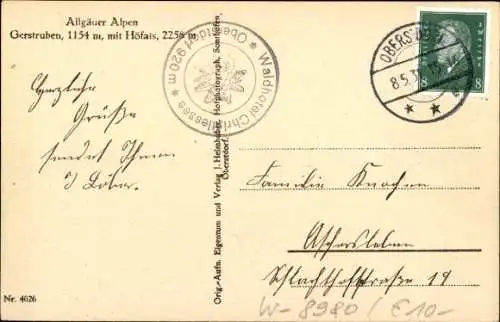 Allgäuer Alpen
Gerstruben, 1154 m, mit Höfats, 2258 m
Herzliche
Grüße
sendet Ihnen
Waldhotel Christlessee ★ Oberstdorf 920 m ★
Orig.-Aufn. Eigentum und Verlag J. Heimhuber, Hofphotograph, Sonthofen, Oberstdorf.
OBERSTDORF
8.5.3
8 8
Familie Knochen
Aschersleben
Schlachthofstraße 19
Nr. 4026
W-8980 / €10-